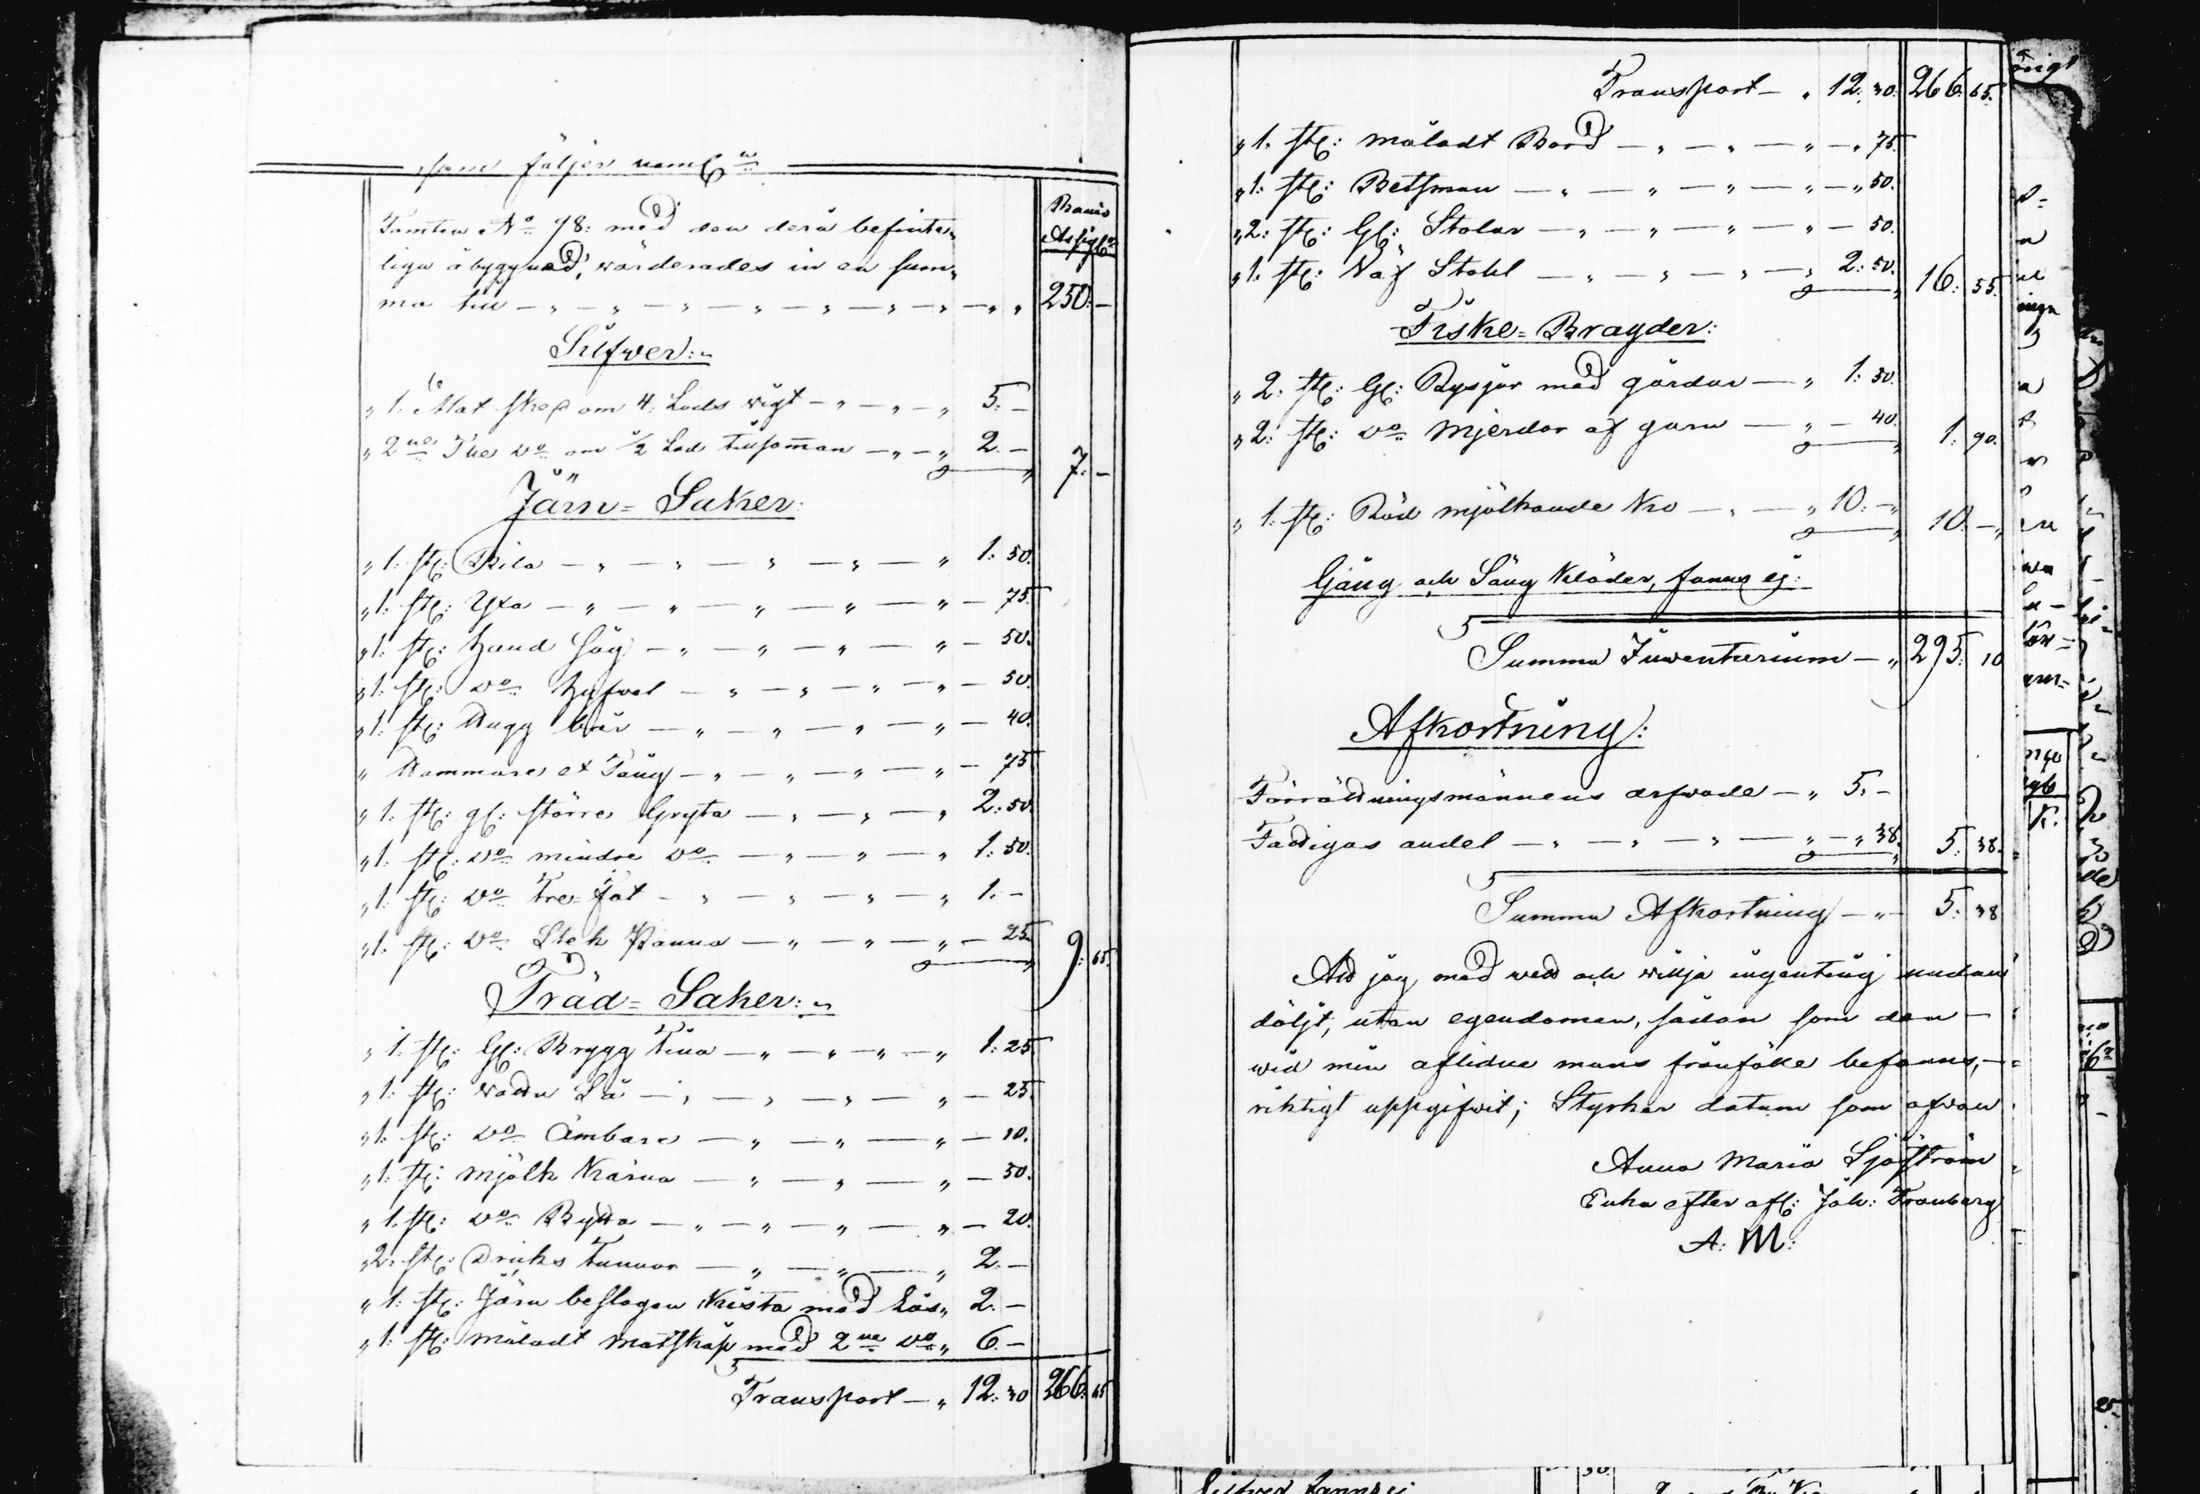 som följer neml:n
Banco
Assigl:n
Tomten No 98: med den derå befinte-
liga åbyggnad, wärderades in en sum-
ma till — 250. —
Silfwer:
" 1: Mat sked om 4: Lods wigt — " 5. —
" 2ne The do om ½ Lod tillsamman — " 2. — 7. —
Järn = Saker:
" 1: st: Bila — " 1: 50.
" 1: st: Yxa — " — 75.
" 1: st: Hand Såg — " — 50.
" 1: st: do Hyfvel — " — 50.
" 1: st: Hugg bår — " — 40.
" Hammare et Tång — " — 75
" 1: st: gl: större Gryta — " 2: 50.
" 1: st: do mindre do — " 1: 50.
" 1: st: do Tre Fot — " 1. —
" 1: st: do Stek Panna — " — 25. 9: 65.
Träd = Saker:
" 1: st: Gl: Brygg Tina — " 1: 25
" 1: st: wattu Så — " — 25
" 1: st: do Ämbare — " — 10.
" 1: st: Mjölk Kärna — " — 50.
" 1: st: do Bytta — " — 20.
" 2: st: Dricks Tunnor — " 2. —
" 1: st: Järn beslagen Kista med Lås " 2. —
" 1: st: måladt matskåp med 2ne do " 6. —
Transport — " 12: 30 266: 65
Transport — " 12: 30. 266. 65.
" 1: st: måladt Bord — " — " 75.
" 1: st: Betsman — " — " 50.
" 2: st: Gl: Stolar — " — 50.
" 1: st: Väf Stohl — " 2: 50. 16: 55.
Fiske = Bragder:
" 2: st: Gl: Rysjor med gårdar — " 1: 50.
" 2: st: do Mjerdor af garn — " — 40. 1: 90.
" 1: st: Röd mjölkande Ko — " 10. — 10. —
Gång och Säng Kläder, fanns ej:
Summa Inventarium — " 295: 10
Afkortning:
Förrättningsmännens arfwode — " 5. —
Fattigas andel — " — " 38. 5. 38.
Summa Afkortning — " 5: 38
Att jag med wett och wilja ingenting undan
döljt, utan egendomen, sådan som den —
wid min aflidne mans frånfälle befanns, —
riktigt uppgifwit; Styrker datum som ofwan
Anna Maria Sjöström
Enka efter afl: Joh: Tranberg
A: M: